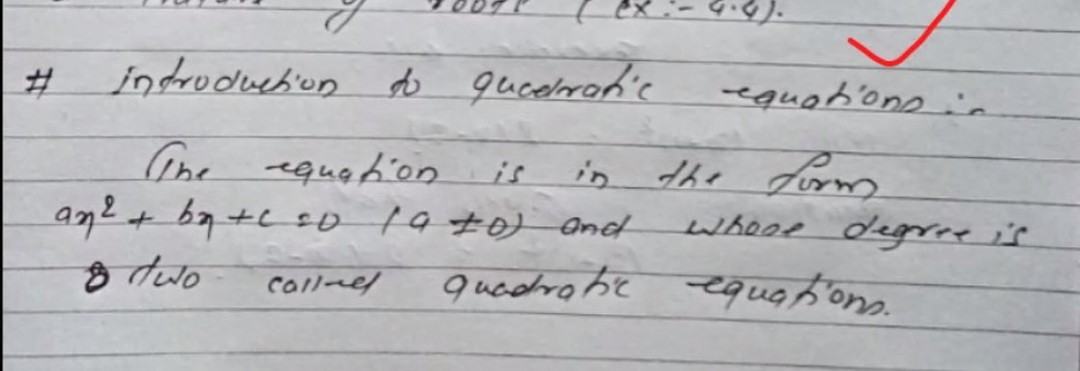 roots (ex:- 4.4).
# introduction to quadratic equations :-
The equation is in the form
ax² + bx + c = 0 (a ≠ 0) and whose degree is
two called quadratic equations.